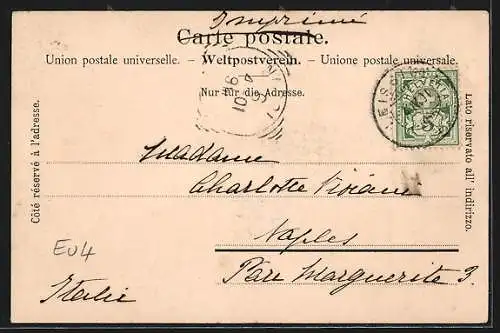 Imprimé
Carte postale.
Union postale universelle. – Weltpostverein. – Unione postale universale.
Nur für die Adresse.
Côté réservé à l'adresse.
Lato riservato all' indirizzo.
HELVETIA
Madame
Charlotte Viviani
Naples
Parc Marguerite 3.
Italie
EU4